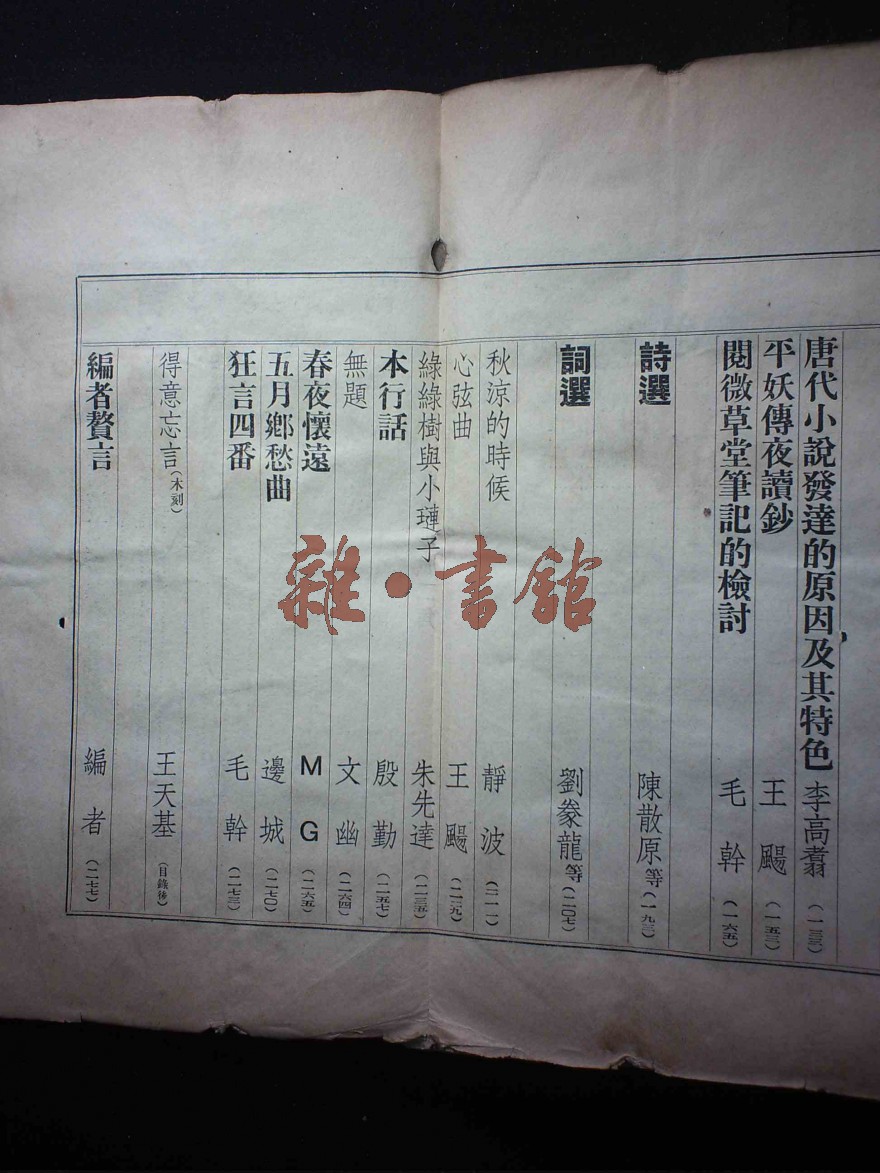 唐代小說發達的原因及其特色 李高翥 (一三三)
平妖傳夜讀鈔 王颺 (一五三)
閱微草堂筆記的檢討 毛幹 (一六五)
詩選 陳散原等 (一九三)
詞選 劉豢龍等 (二〇七)
秋涼的時候 靜波 (二一一)
心弦曲 王颺 (二一九)
綠綠樹與小璉子 朱先達 (二三五)
本行話 殷勤 (二五七)
無題 文幽 (二六四)
春夜懷遠 MG (二六五)
五月鄉愁曲 邊城 (二七〇)
狂言四番 毛幹 (二七三)
得意忘言(木刻) 王天基 (目錄後)
編者贅言 編者 (二七七)
雜·書館